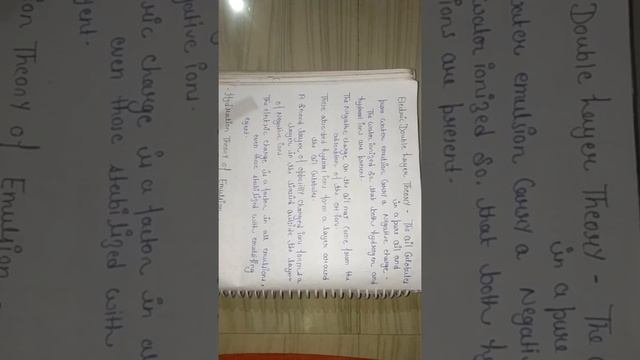 Electric Double Layer Theory - The oil Globules
in a pure oil and
pure water emulsion carry a negative charge.
The water ionized so that both hydrogen and
hydroxyl ions are present.
The negative charge on the oil may come from the
adsorption of the OH ions.
These adsorbed hydroxyl ions form a layer around
the oil Globules.
A second layer of oppositly charged ions forms a
layer in the liquid outside the layer
of negative ions.
The electric charge is a factor in all emulsions,
even those stabilized with emulsifying
agent.
- Hydration Theory of Emulsion